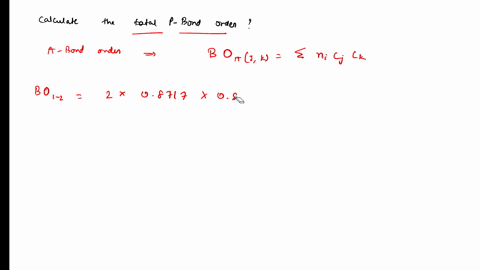 Calculate the total P-Bond order ?
A-Bond order ⇒ BOπ(J,k) = Σ ni cj ck
BO1-2 = 2 × 0.8717 × 0.8